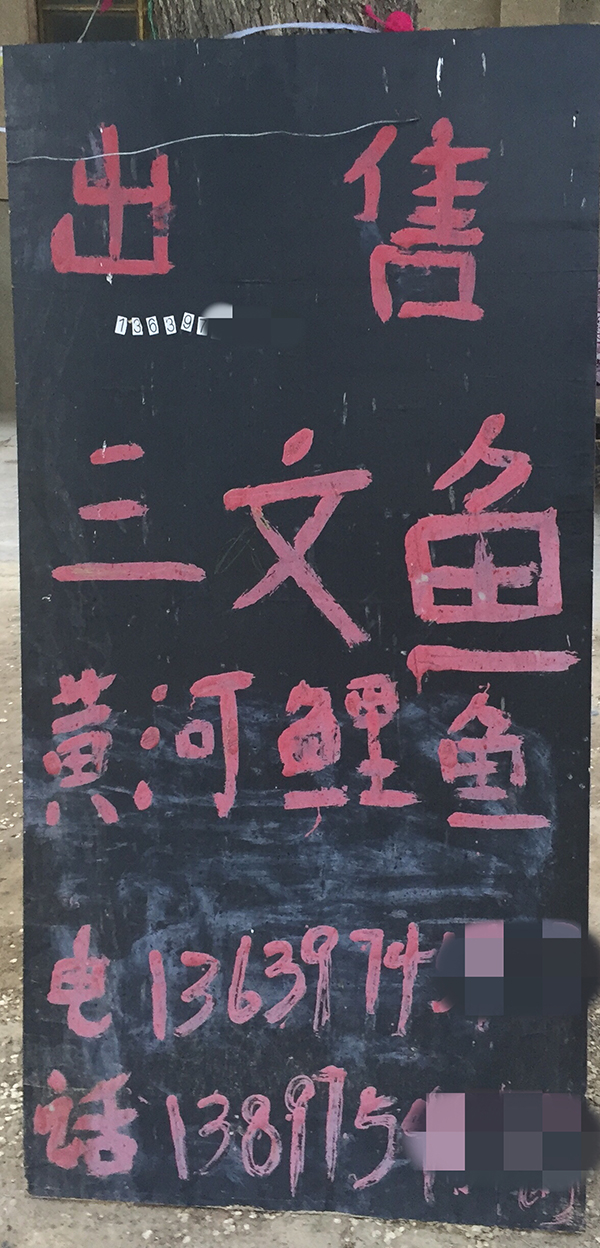 出售
136397
三文鱼
黄河鲤鱼
电 1363974
话 138975